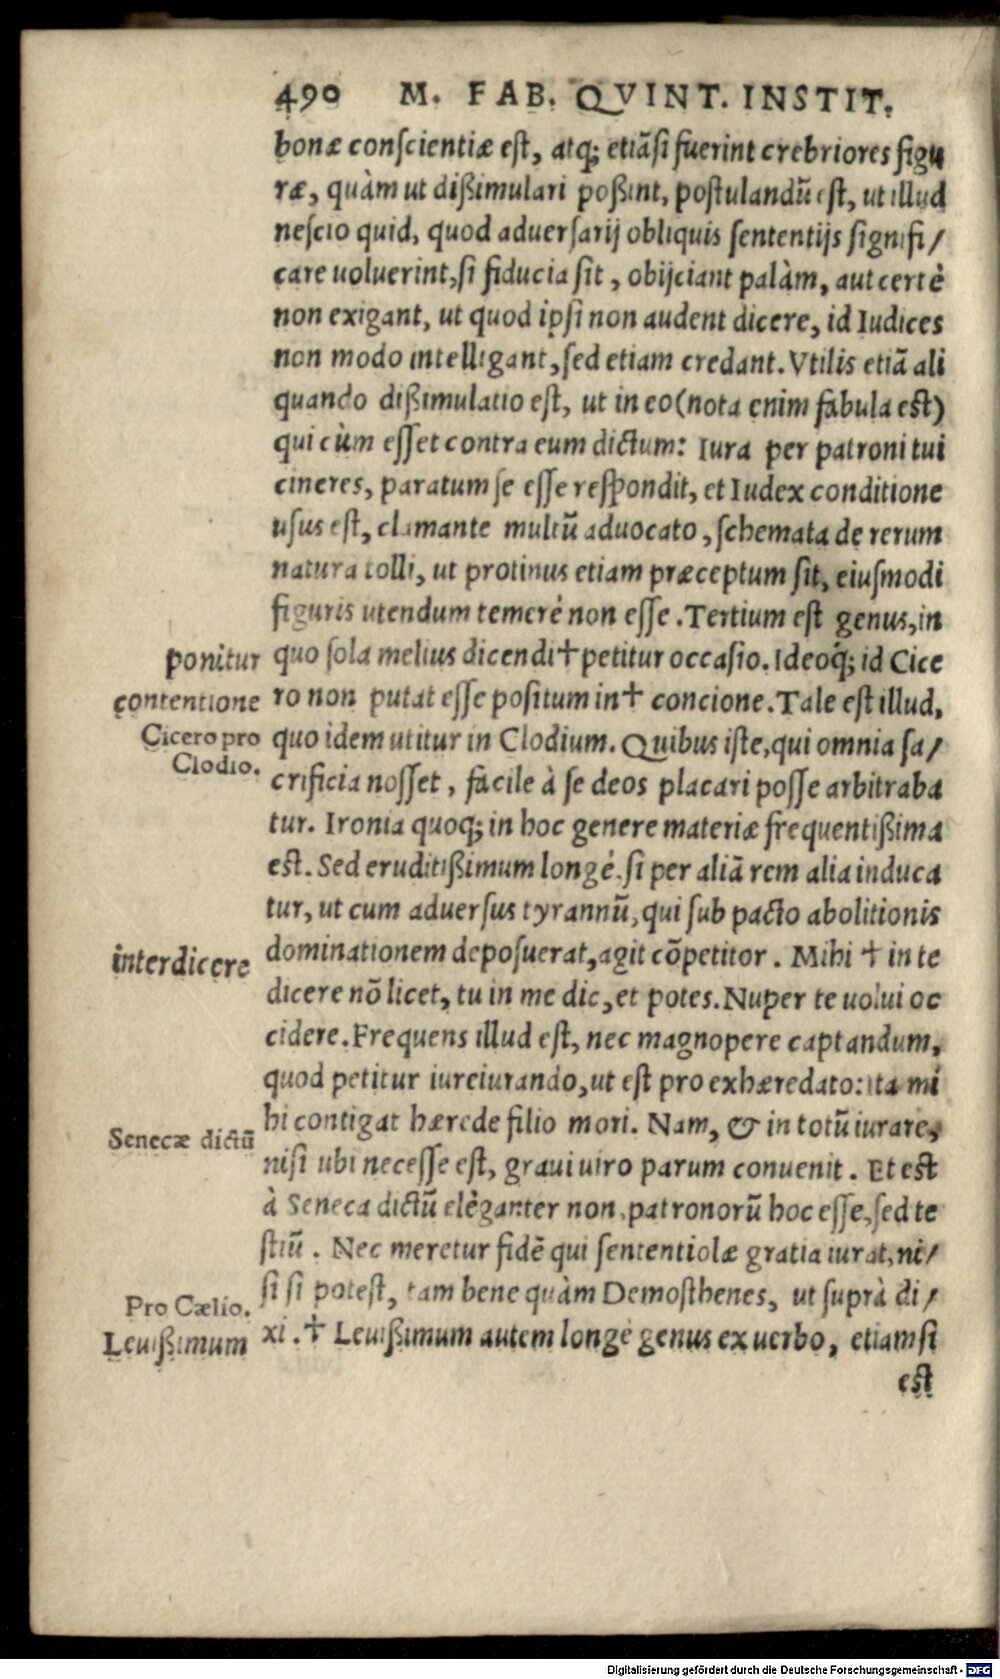 490 M. FAB. QVINT. INSTIT.
bonæ conſcientiæ eſt, atq; etiãſi fuerint crebriores figu
ræ, quàm ut dißimulari poßint, poſtulandũ eſt, ut illud
neſcio quid, quod aduerſarij obliquis ſententijs ſignifi/
care uoluerint, ſi fiducia ſit, obijciant palàm, aut certè
non exigant, ut quod ipſi non audent dicere, id Iudices
non modo intelligant, ſed etiam credant. Vtilis etiã ali
quando dißimulatio eſt, ut in eo (nota enim fabula eſt)
qui cùm eſſet contra eum dictum: Iura per patroni tui
cineres, paratum ſe eſſe reſpondit, et Iudex conditione
uſus eſt, clamante multũ aduocato, ſchemata de rerum
natura tolli, ut protinus etiam præceptum ſit, eiuſmodi
figuris utendum temerè non eſſe. Tertium eſt genus, in
ponitur
quo ſola melius dicendi † petitur occaſio. Ideoq́; id Cice
contentione
ro non putat eſſe poſitum in † concione. Tale eſt illud,
Cicero pro
Clodio.
quo idem utitur in Clodium. Quibus iſte, qui omnia ſa/
crificia noſſet, facile à ſe deos placari poſſe arbitraba
tur. Ironia quoq; in hoc genere materiæ frequentißima
eſt. Sed eruditißimum longè, ſi per aliã rem alia induca
tur, ut cum aduerſus tyrannũ, qui ſub pacto abolitionis
interdicere
dominationem depoſuerat, agit cõpetitor. Mihi † in te
dicere nõ licet, tu in me dic, et potes. Nuper te uolui oc
cidere. Frequens illud eſt, nec magnopere captandum,
quod petitur iureiurando, ut eſt pro exhæredato: ita mi
hi contigat hærede filio mori. Nam, & in totũ iurare,
Senecæ dictũ
niſi ubi neceſſe eſt, graui uiro parum conuenit. Et eſt
à Seneca dictũ elèganter non, patronorũ hoc eſſe, ſed te
ſtiũ. Nec meretur fidẽ qui ſententiolæ gratia iurat, ni/
ſi ſi poteſt, tam bene quàm Demoſthenes, ut ſuprà di/
Pro Cælio.
Leuißimum
xi. † Leuißimum autem longè genus ex uerbo, etiamſi
eſt
Digitalisierung gefördert durch die Deutsche Forschungsgemeinschaft - DFG